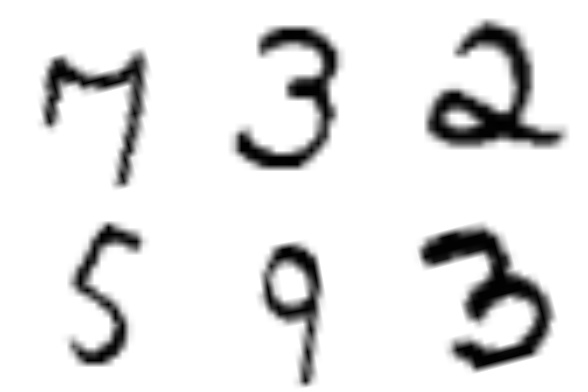 7 3 2
5 9 3